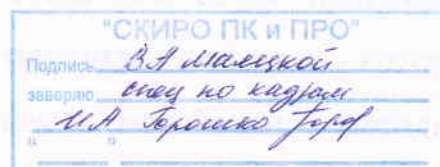 "СКИРО ПК и ПРО"
Подпись В А Малецкой
заверяю спец по кадрам
И А Горошко
" "